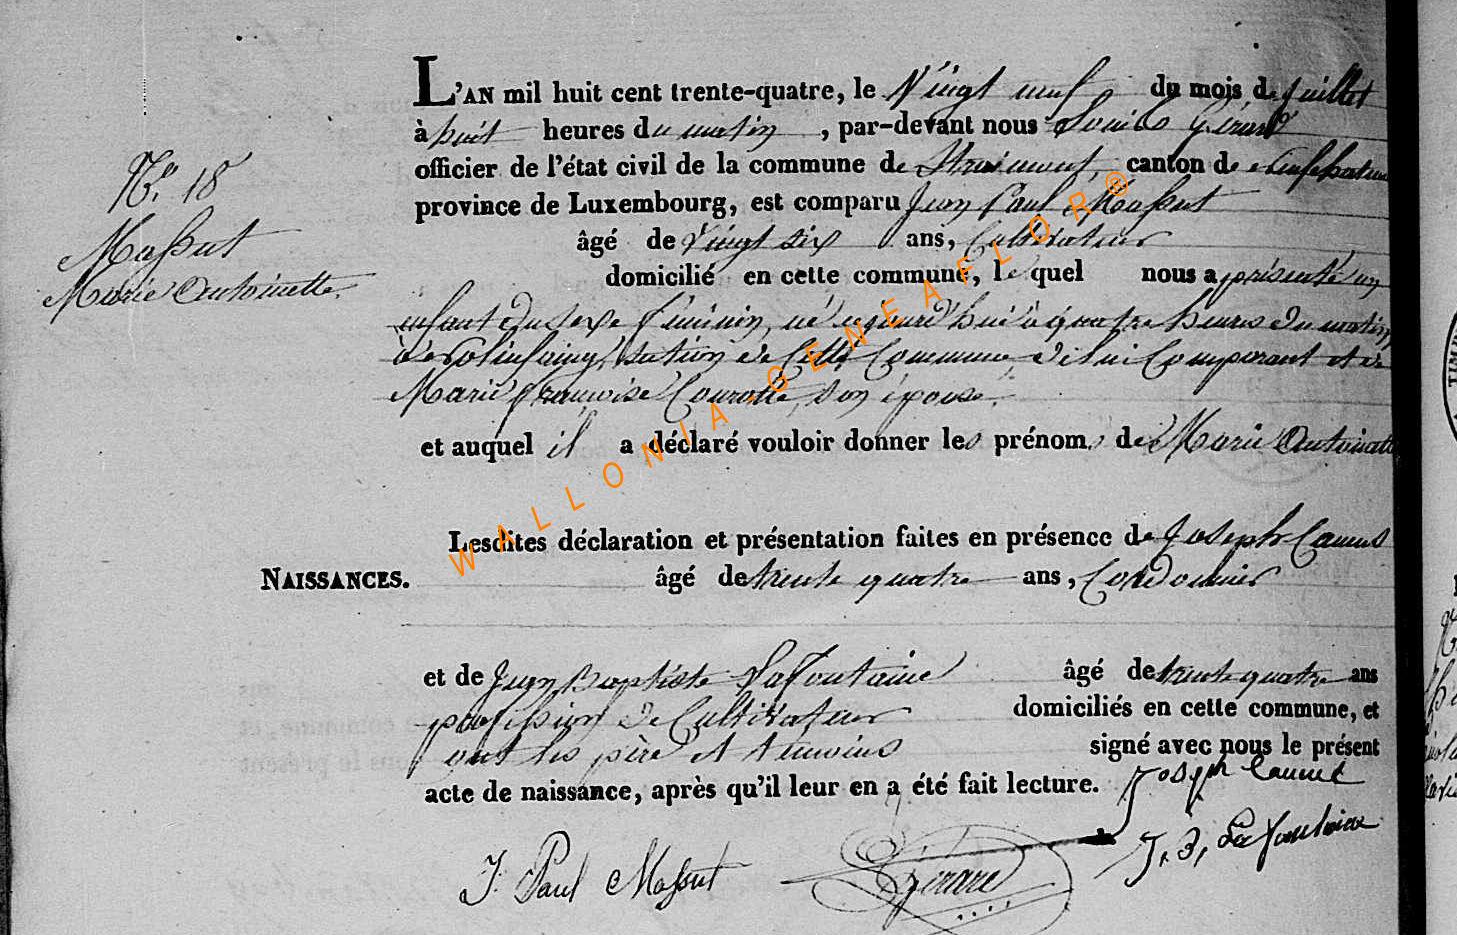 L'AN mil huit cent trente-quatre, le Vingt neuf du mois de Juillet
à huit heures du matin, par-devant nous Louis Gérard
officier de l'état civil de la commune de Straimont, canton de neufchateau
province de Luxembourg, est comparu Jean Paul Massut
âgé de Vingt six ans, Cultivateur
domicilié en cette commune, le quel nous a présenté un
enfant du sexe féminin, né aujourd'hui à quatre heures du matin
à section de Cette Commune de lui Comparant et de
Marie françoise son épouse.
et auquel il a déclaré vouloir donner les prénoms de Marie Antoinette
Lesdites déclaration et présentation faites en présence de Joseph Camus
âgé de trente quatre ans, Cordonnier
et de Jean Baptiste Lafontaine âgé de trente quatre ans
profession de Cultivateur domiciliés en cette commune, et
ont les père et temoins signé avec nous le présent
acte de naissance, après qu'il leur en a été fait lecture. Joseph Camus
J. Paul Massut Gérard J. B. Lafontaine
No. 18
Massut
Marie Antoinette.
NAISSANCES.
WALLONIA-GENEAFLOR®